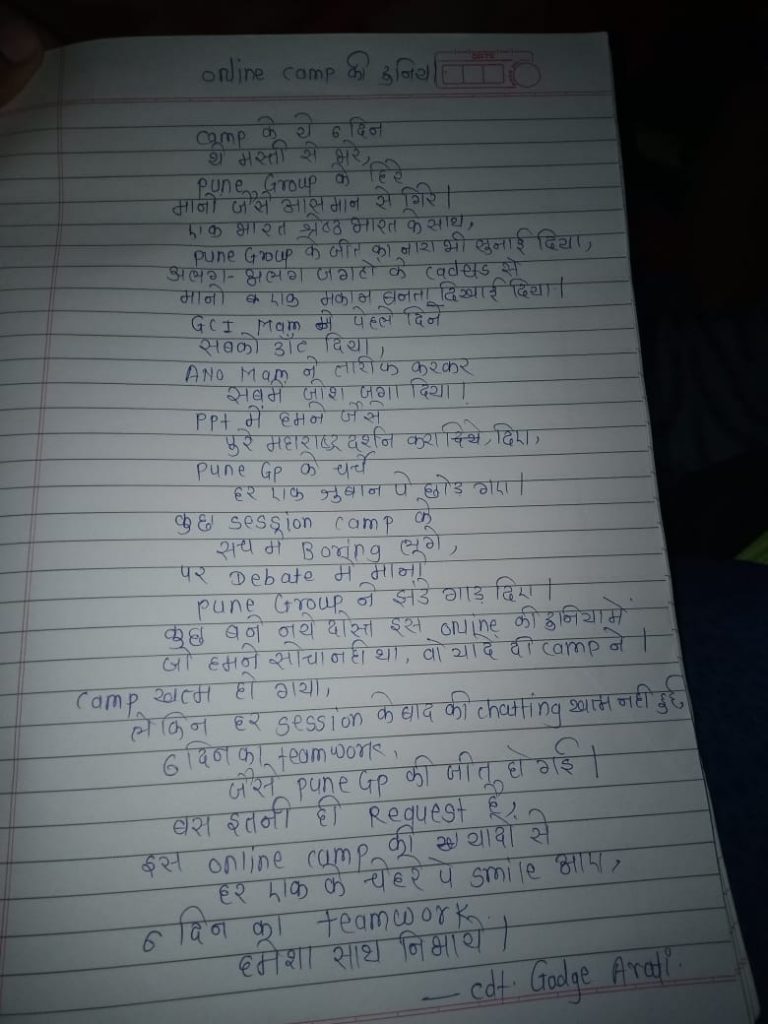 online camp की दुनिया
DATE
camp के ये 6 दिन
थे मस्ती से भरे,
Pune Group के हिरे
मानो जैसे आसमान से गिरे।
एक भारत श्रेष्ठ भारत के साथ,
Pune Group के जीत का नारा भी सुनाई दिया,
अलग-अलग जगहो के cadets से
मानो एक मकान बनता दिखाई दिया।
GCI Mam ने पेहले दिन
सबको डाँट दिया,
ANO Mam ने तारीफ करकर
सबमे जोश जगा दिया।
PPt में हमने जैसे
पुरे महाराष्ट्र दर्शन करा दिये, दिए,
Pune GP के चर्चे
हर एक जुबान पे छोड गए।
कुछ session camp के
सच मे Boring लगे,
पर Debate मे मानो
Pune Group ने झंडे गाड़ दिए।
कुछ बने नये दोस्त इस online की दुनिया मे
जो हमने सोचा नही था, वो यादे दी camp ने।
camp खत्म हो गया,
लेकिन हर session के बाद की chatting खत्म नही हुई
6 दिन का teamwork,
जैसे Pune GP की जीत हो गई।
बस इतनी ही Request है,
इस online camp की यादो से
हर एक के चेहरे पे smile आए,
6 दिन का teamwork
हमेशा साथ निभाये।
— cdt. Godge Arati.